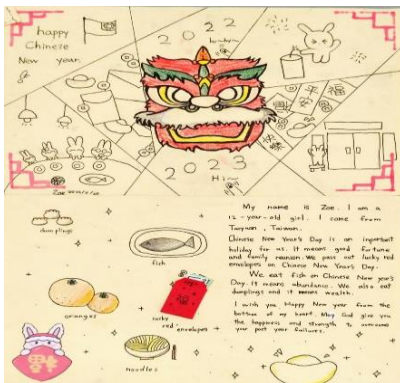 happy
Chinese
New year
2022
2023
dumplings
fish
oranges
lucky
red envelopes
noodles
福
My name is Zoe. I am a
12-year-old girl. I come from
Taoyuan, Taiwan.
Chinese New Year's Day is an important
holiday for us. It means good fortune
and family reunion. We pass out lucky red
envelopes on Chinese New Year's Day.
We eat fish on Chinese New year's
Day. It means abundance. We also eat
dumplings and it means wealth.
I wish you Happy New year from the
bottom of my heart. May God give you
the happiness and strength to overcome
your past year failures.